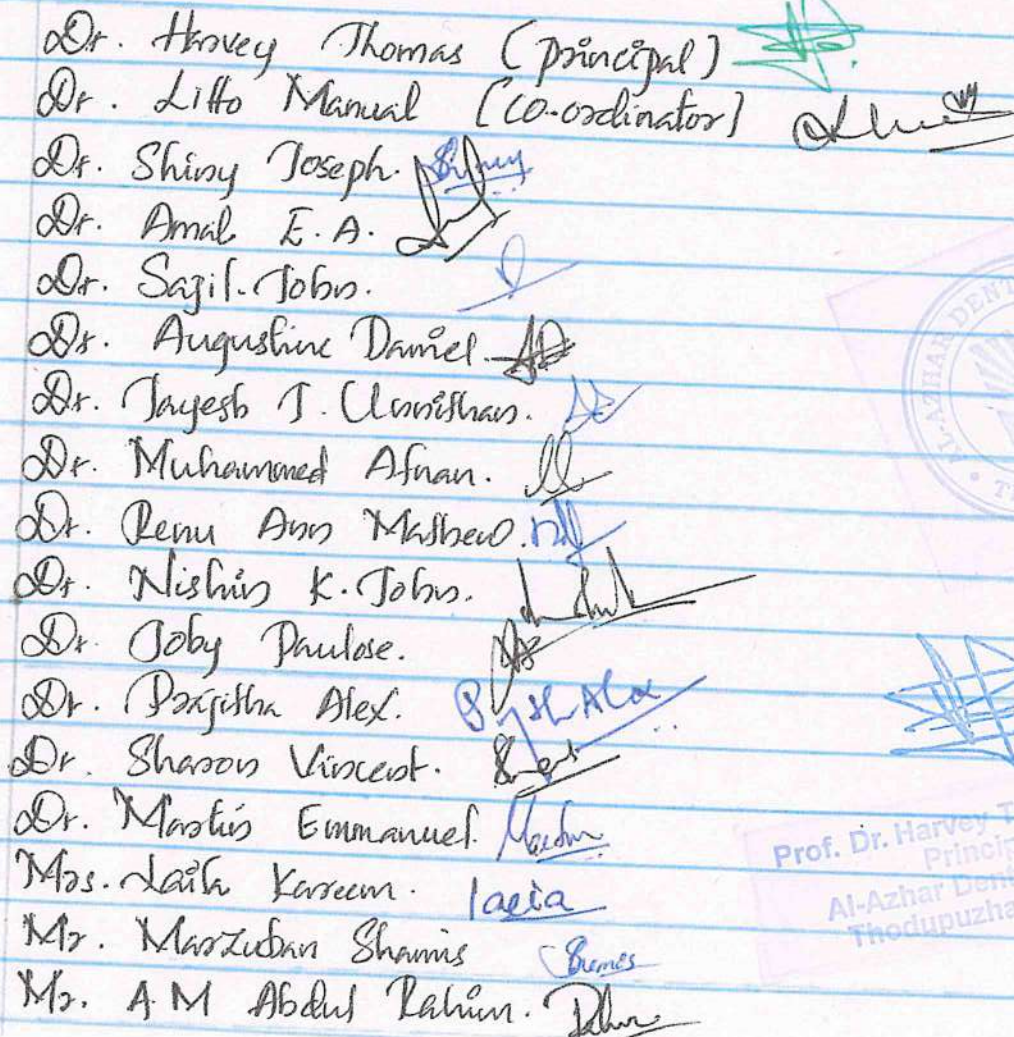 Dr. Harvey Thomas (Principal)
Dr. Litto Manual (Co-ordinator)
Dr. Shiny Joseph.
Dr. Amal E.A.
Dr. Sajil John.
Dr. Augustine Daniel
Dr. Jayesh J. Unnithan.
Dr. Muhammed Afnan.
Dr. Renu Ann Mathew.
Dr. Nishin K. John.
Dr. Joby Paulose.
Dr. Prajitha Alex.
Dr. Sharon Vincent.
Dr. Martin Emmanuel.
Mrs. Laila Kareem.
Mr. Marzuban Shamis
Mr. A M Abdul Rahim.
AL-AZHAR DENT
Prof. Dr. Harvey T
Princip
Al-Azhar Dent
Thodupuzha